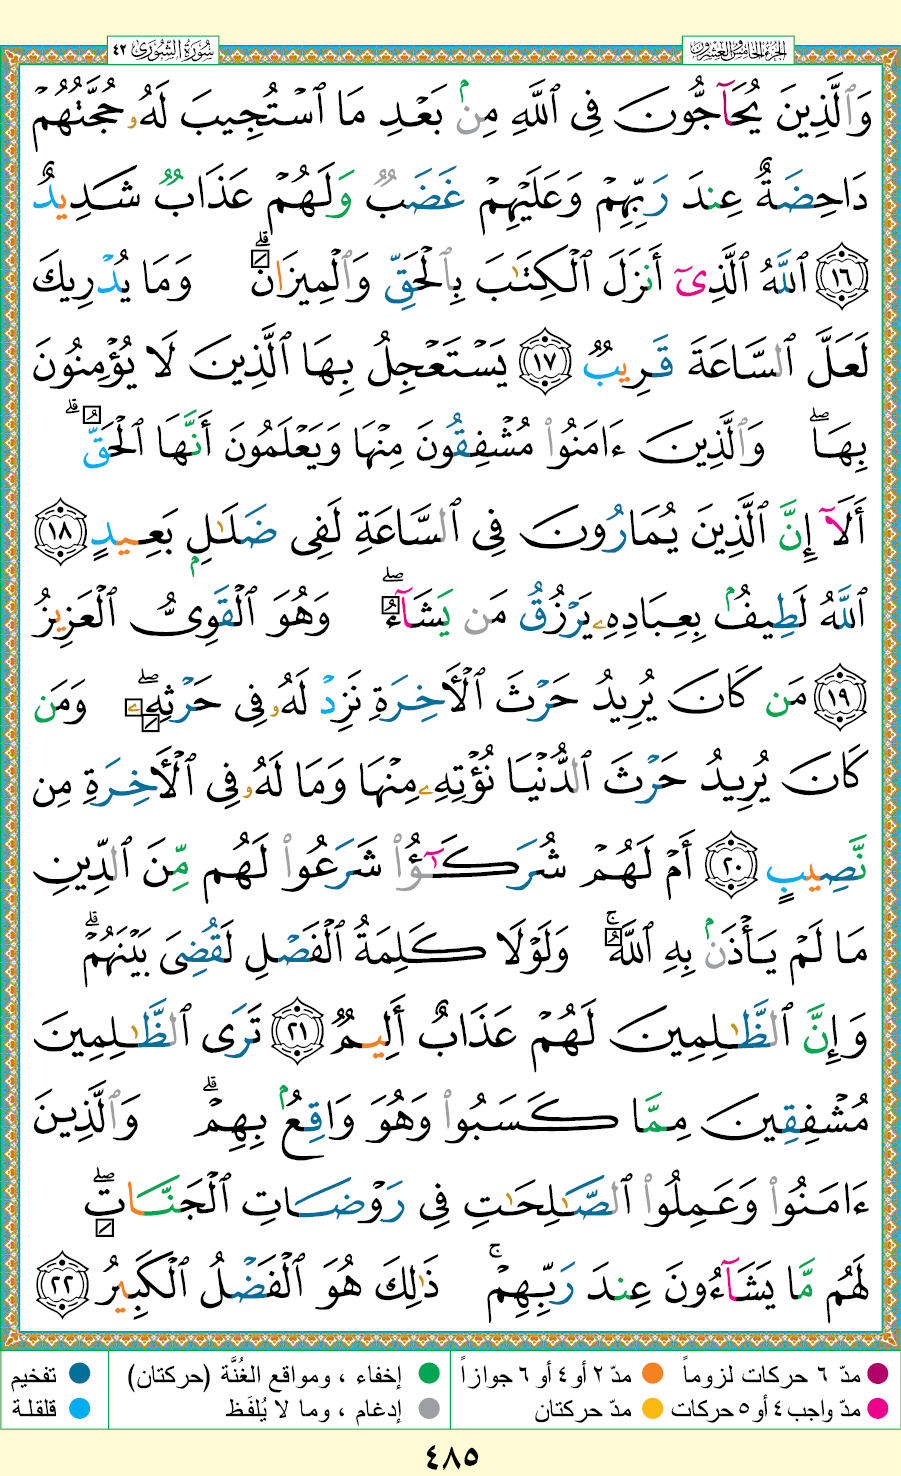 سُورَةُ الشُّورَى ٤٢
الجزء الخامس والعشرون
وَٱلَّذِينَ يُحَآجُّونَ فِى ٱللَّهِ مِنۢ بَعْدِ مَا ٱسْتُجِيبَ لَهُۥ حُجَّتُهُمْ
دَاحِضَةٌ عِندَ رَبِّهِمْ وَعَلَيْهِمْ غَضَبٌ وَلَهُمْ عَذَابٌ شَدِيدٌ
١٦ ٱللَّهُ ٱلَّذِىٓ أَنزَلَ ٱلْكِتَٰبَ بِٱلْحَقِّ وَٱلْمِيزَانَ ۗ وَمَا يُدْرِيكَ
لَعَلَّ ٱلسَّاعَةَ قَرِيبٌ ١٧ يَسْتَعْجِلُ بِهَا ٱلَّذِينَ لَا يُؤْمِنُونَ
بِهَا ۖ وَٱلَّذِينَ ءَامَنُوا۟ مُشْفِقُونَ مِنْهَا وَيَعْلَمُونَ أَنَّهَا ٱلْحَقُّ ۗ
أَلَآ إِنَّ ٱلَّذِينَ يُمَارُونَ فِى ٱلسَّاعَةِ لَفِى ضَلَٰلٍۭ بَعِيدٍ ١٨
ٱللَّهُ لَطِيفٌۢ بِعِبَادِهِۦ يَرْزُقُ مَن يَشَآءُ ۖ وَهُوَ ٱلْقَوِىُّ ٱلْعَزِيزُ
١٩ مَن كَانَ يُرِيدُ حَرْثَ ٱلْأَخِرَةِ نَزِدْ لَهُۥ فِى حَرْثِهِۦ ۖ وَمَن
كَانَ يُرِيدُ حَرْثَ ٱلدُّنْيَا نُؤْتِهِۦ مِنْهَا وَمَا لَهُۥ فِى ٱلْأَخِرَةِ مِن
نَّصِيبٍ ٢٠ أَمْ لَهُمْ شُرَكَٰٓؤُا۟ شَرَعُوا۟ لَهُم مِّنَ ٱلدِّينِ
مَا لَمْ يَأْذَنۢ بِهِ ٱللَّهُ ۚ وَلَوْلَا كَلِمَةُ ٱلْفَصْلِ لَقُضِىَ بَيْنَهُمْ ۗ
وَإِنَّ ٱلظَّٰلِمِينَ لَهُمْ عَذَابٌ أَلِيمٌ ٢١ تَرَى ٱلظَّٰلِمِينَ
مُشْفِقِينَ مِمَّا كَسَبُوا۟ وَهُوَ وَاقِعٌۢ بِهِمْ ۗ وَٱلَّذِينَ
ءَامَنُوا۟ وَعَمِلُوا۟ ٱلصَّٰلِحَٰتِ فِى رَوْضَاتِ ٱلْجَنَّاتِ ۖ
لَهُم مَّا يَشَآءُونَ عِندَ رَبِّهِمْ ۚ ذَٰلِكَ هُوَ ٱلْفَضْلُ ٱلْكَبِيرُ ٢٢
مدّ ٦ حركات لزوماً
مدّ ٢ أو ٤ أو ٦ جوازاً
إخفاء ، ومواقع الغُنَّة (حركتان)
تفخيم
مدّ واجب ٤ أو ٥ حركات
مدّ حركتان
إدغام ، وما لا يُلفَظ
قلقلة
٤٨٥